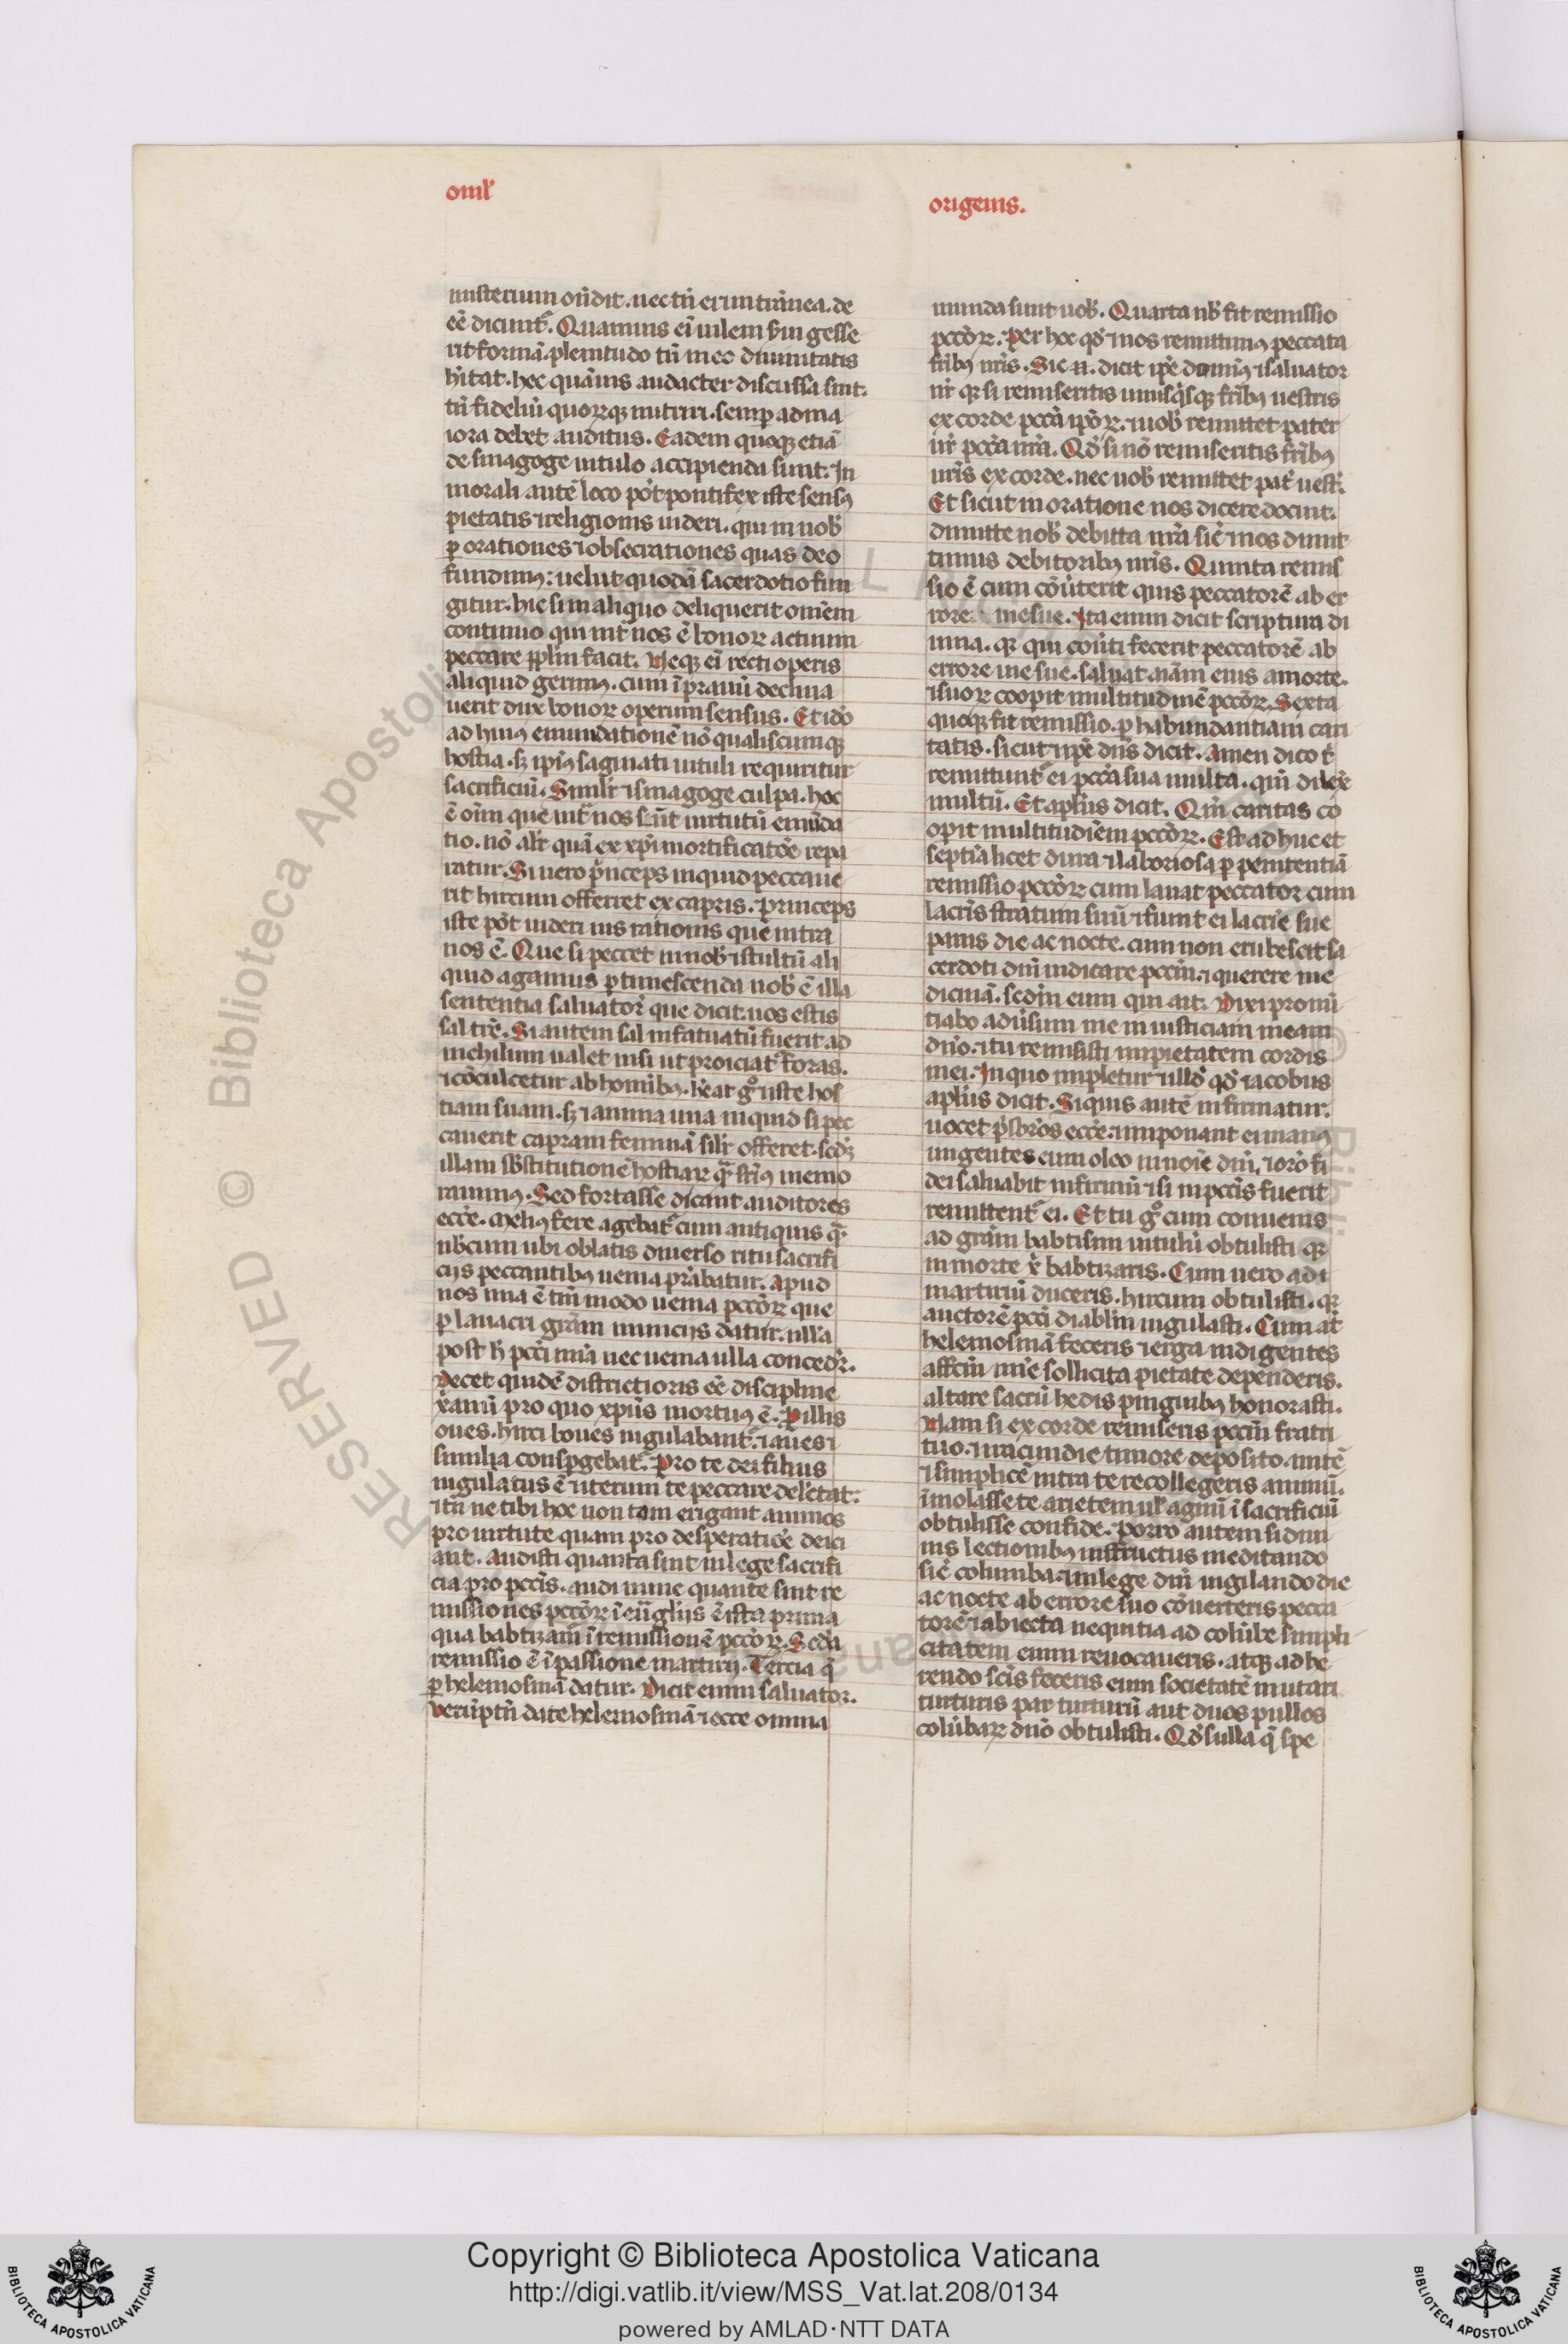 omł
origenis.
misterium on̄dit. nec tn̄ erunt inanea. de
eē dicunt᷑. Quamuis ei uilem s̄ui gesse
rit formā. plenitudo tn̄ in eo diuinitatis
hītat. hec quāuis audacter discussa sint.
tn̄ fideliū quorūqꝫ nutriri. semꝑ ad ma
iora debet auditus. Eadem quoqꝫ etiā
de sinagoge uitulo accipienda sunt. In
morali autē loco pōt pontifex iste sensꝰ
pietatis ⁊ religionis uideri. qui in nob̄
ꝑ orationes ⁊ obsecrationes quas deo
fundimꝰ: uelut quodā sacerdotio fun
gitur. hic si in aliquo deliquerit omēm
continuo qui int̄ nos ē bonoꝝ actuum
peccare ꝓplm̄ facit. Neqꝫ ei recti operis
aliquid gerimꝰ. cum ī prauū declina
uerit dux bonoꝝ operum sensus. Et idō
ad huiꝰ emundationē nō qualiscumqꝫ
hostia. sꝫ ip̄iꝰ saginati uituli requiritur
sacrificiū. Simlr̄ ⁊ sinagoge culpa. hoc
ē oīm que int̄ nos sūt uirtutū emūda
tio. nō alr̄ quā ex xp̄i mortificatōe repa
ratur. Si uero p̄nceps inquid peccaue
rit hircum offerret ex capris. Princeps
iste pōt uideri uis rationis que intra
nos ē. Que si peccet in nob̄ ⁊ stultū ali
quid agamus ꝑtimescenda nob̄ ē illa
sententia saluator̄ que dicit. uos estis
sal tr̄e. Si autem sal infatuatū fuerit ad
nichilum ualet nisi ut proiciat᷑ foras.
⁊ cōculcetur ab homībꝰ. hēat gͦ ⁊ iste hos
tiam suam. sꝫ ⁊ anima una inquid si pec
cauerit capram feminā silr̄ offeret. sedꝫ
illam s̄bstitutionē hostiaꝝ qͣ sup̄iꝰ memo
rauimꝰ. Sed fortasse dicant auditores
ecc̄e. Meliꝰ fere agebat᷑ cum antiquis qͣ
nb̄cum ubi oblatis diuerso ritu sacrifi
cijs peccantibꝰ uenia pr̄abatur. Apud
nos una ē tm̄modo uenia pccōꝝ que
ꝑ lauacri grām inicijs datur. ulla
post h̄ pccī mīa nec uenia ulla concedr̄.
Decet quidē districtioris eē discipline
x̄anū pro quo xp̄us mortuꝰ ē. P illis
oues. hirci boues iugulabant᷑. ⁊ aues ⁊
similia conspgebat᷑. Pro te dei filius
iugulatus ē ⁊ iterum te peccare delc̄tat.
⁊ tn̄ ne tibi hoc non tam erigant animos
pro uirtute quam pro desperatiōe deici
ant. Audisti quanta sint in lege sacrifi
cia pro pccīs. audi nunc quante sint re
missiones pccōꝝ ī eūglijs ē ista prima
qua babtizam̄ ī remissionē pccōꝝ. Scd̄a
remissio ē ī passione martirij. Tercia q̄
ꝑ helemosinā datur. Dicit enim saluator.
Verūptn̄ date helemosinā ⁊ ecce omnia
munda sunt uob̄. Quarta nb̄ fit remissio
pccōꝝ. Per hoc qd̄ ⁊ nos remittimꝰ peccata
fr̄ibꝰ nr̄is. Sic .n. dicit ip̄e dominꝰ ⁊ saluator
nr̄ qꝫ si remiseritis unusq̄sqꝫ fr̄ibꝰ uestris
ex corde pccā ip̄oꝝ. ⁊ uob̄ remittet pater
ur̄ pccā ur̄a. Qd̄ si nō remiseritis fr̄ibꝰ
ur̄is ex corde. nec uob̄ remittet pat̄ uest̄.
Et sicut in oratione nos dicere docuit.
dimitte nob̄ debitta nr̄a sic̄ ⁊ nos dimit
timus debitoribꝰ nr̄is. Quinta remis
sio ē cum cōūterit quis peccatorē ab er
rore uie sue. Ita enim dicit scriptura di
uina. qꝫ qui cōūti fecerit peccatorē ab
errore uie sue. saluat aīam eius a morte.
⁊ suoꝝ coopit multitudinē pccōꝝ. Sexta
quoqꝫ fit remissio. ꝑ habundantiam cari
tatis. sicut ⁊ ip̄e dn̄s dicit. Amen dico t̄
remittunt᷑ ei pccā sua multa. qm̄ dilex̄
multū. Et apl̄us dicit. Qm̄ caritas co
opit multitudiēm pccōꝝ. Est adhuc et
septīa licet dura ⁊ laboriosa ꝑ penitentiā
remissio pccōꝝ cum lauat peccator cum
lacrīs stratum suū ⁊ fiunt ei lacrīe sue
panis die ac nocte. cum non erubescit sa
cerdoti dn̄i indicare pccm̄. ⁊ querere me
dicinā. sedm̄ eum qui ait. Dixi pronū
tiabo aduīsum me iniusticiam meam
dn̄o. ⁊ tu remisisti impietatem cordis
mei. In quo impletur ⁊ illd̄ qd̄ iacobus
apl̄us dicit. Si quis autē infirmatur.
uocet p̄sbr̄os ecc̄e. ⁊ imponant ei manꝰ
ungentes eum oleo in noīe dn̄i. ⁊ or̄o fi
dei saluabit infirmū ⁊ si in pccīs fuerit
remittent᷑ ei. Et tu gͦ cum conuenis
ad grām babtismi uitulū obtulisti qꝫ
in morte x̄ babtizaris. Cum uero ad t
martiriū duceris. hircum obtulisti. qꝫ
auctorē pccī diablm̄ iugulasti. Cum at̄
helemosinā feceris ⁊ erga indigentes
affcm̄ mīe sollicita pietate dependeris.
altare sacrū hedis pinguibꝰ honorasti.
Nam si ex corde remiseris pccm̄ fratri
tuo. ⁊ iracundie timore deposito. mitē
⁊ simplicē intra te recollegeris animū.
īmolasse te arietem ul̄ agnū ī sacrificiū
obtulisse confide. Porro autem si diui
nis lectionibꝰ instructus meditando
sic̄ columba. ⁊ in lege dn̄i uigilando die
ac nocte ab errore suo cōuerteris pecca
torē ⁊ abiecta nequitia ad colūbe simpli
citatem eum reuocaueris. atqꝫ adhe
rendo scīs feceris eum societatē imitari
turturis par turturū aut duos pullos
colūbaꝝ dn̄o obtulisti. Qd̄ si illa q̄ spe
Copyright © Biblioteca Apostolica Vaticana
http://digi.vatlib.it/view/MSS_Vat.lat.208/0134
powered by AMLAD·NTT DATA
BIBLIOTECA APOSTOLICA VATICANA
BIBLIOTECA APOSTOLICA VATICANA